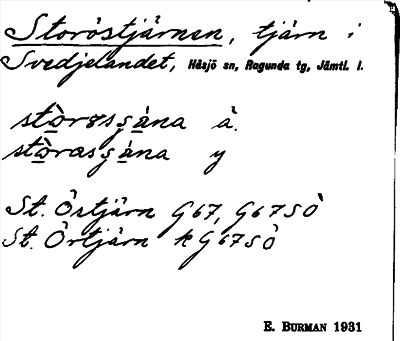 Storöstjärnen, tjärn i
Svedjelandet, Håsjö sn, Ragunda tg, Jämtl. l.
stòrøsʂána å.
stòrasʂána y
St. Östjärn G 67, G 67 SÖ
St. Örtjärn k G 67 SÖ
E. BURMAN 1931